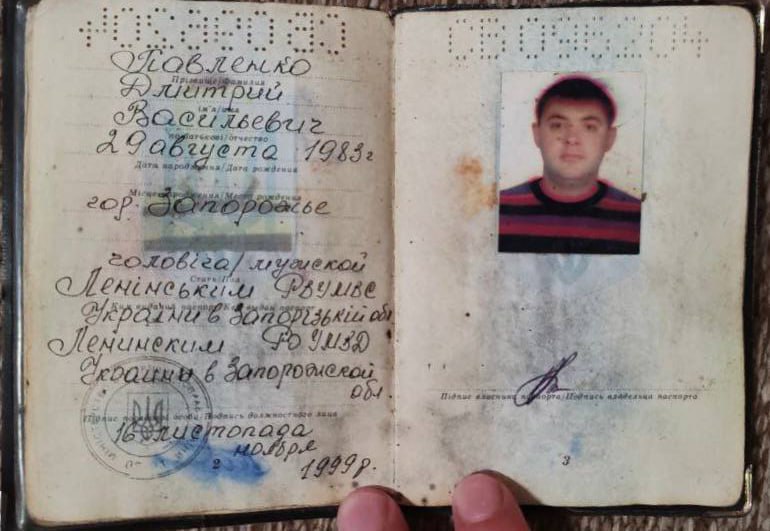 Павленко
Прізвище/Фамилия
Дмитрий
ім'я/имя
Васильевич
по батькові/отчество
29 августа 1983 г
Дата народження/Дата рождения
Місце народження/Место рождения
гор. Запорожье
чоловіча/мужской
Стать/Пол
Ленінським РВУМВС
України в Запорізькій обл
Ленинским РОУМВД
Украины в Запорожской
обл.
Підпис посадової особи/Подпись должностного лица
16 листопада
ноября
1999 р.
2
Підпис власника паспорта/Подпись владельца паспорта
3